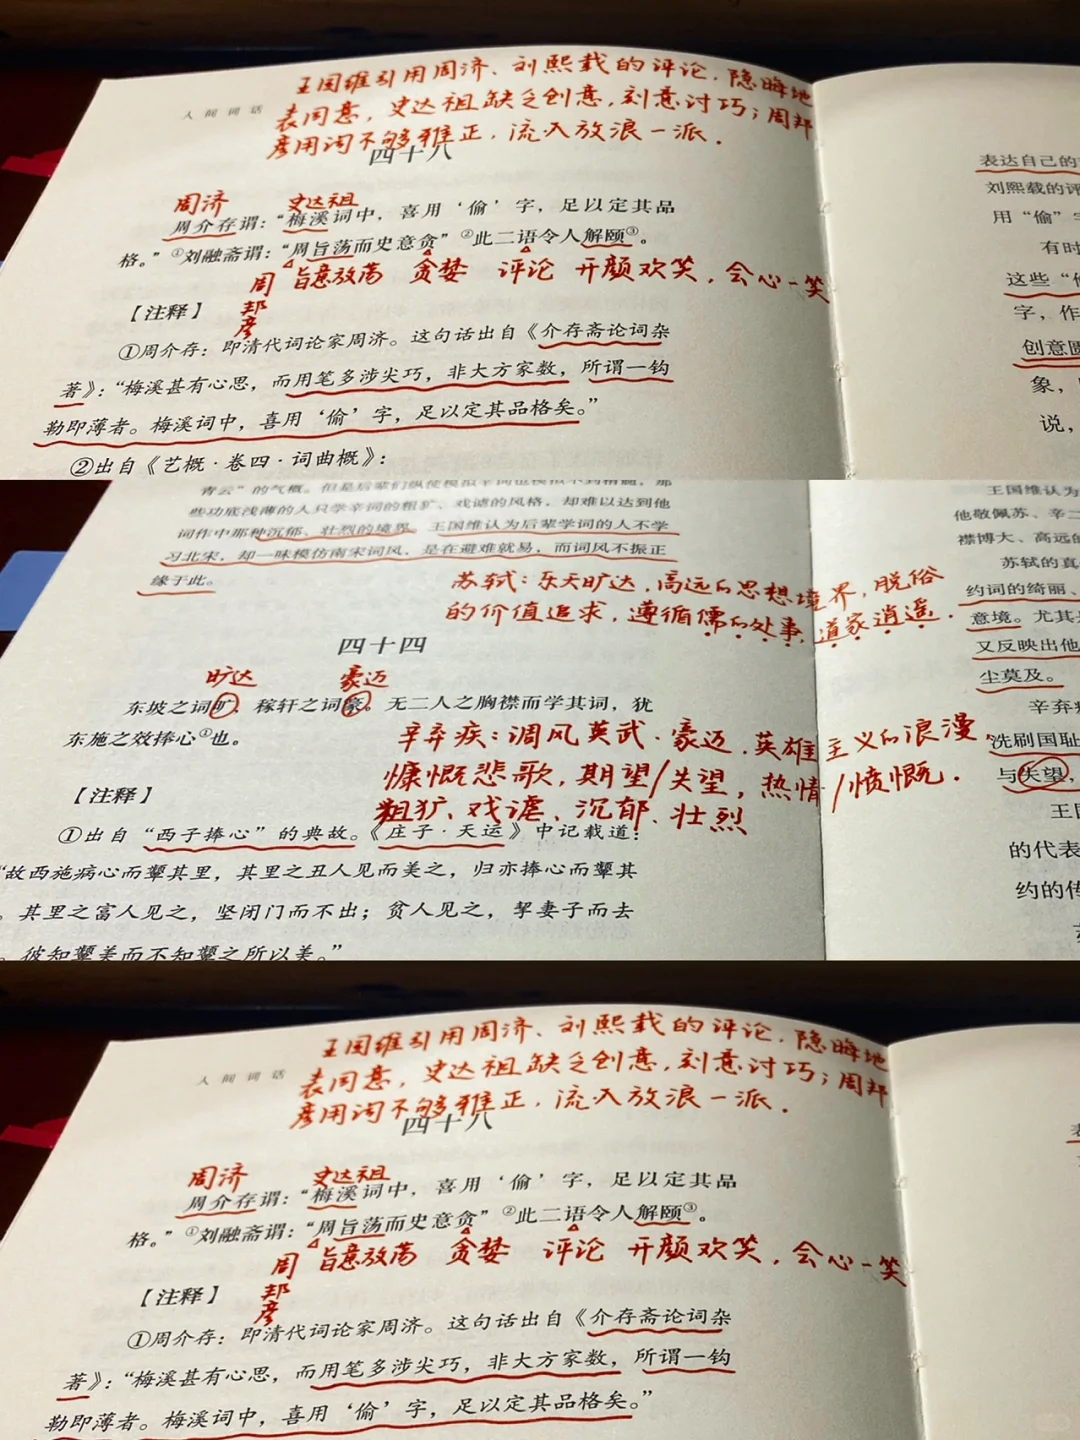 王国维引用周济、刘熙载的评论，隐晦地
人间词话
表同意，史达祖缺乏创意，刻意讨巧；周邦
彦用词不够雅正，流入放浪一派．
四十八
周济 史达祖
周介存谓：“梅溪词中，喜用‘偷’字，足以定其品
格。”①刘融斋谓：“周旨荡而史意贪”②此二语令人解颐③。
周邦彦 旨意放荡 贪婪 评论 开颜欢笑，会心一笑
【注释】
①周介存：即清代词论家周济。这句话出自《介存斋论词杂
著》：“梅溪甚有心思，而用笔多涉尖巧，非大方家数，所谓一钩
勒即薄者。梅溪词中，喜用‘偷’字，足以定其品格矣。”
②出自《艺概·卷四·词曲概》：
表达自己的
刘熙载的评
用“偷”字
有时
这些“偷
字，作
创意匮
象，
说，
些功底浅薄的人只学辛词的粗犷、戏谑的风格，却难以达到他
词作中那种沉郁、壮烈的境界。王国维认为后辈学词的人不学
习北宋，却一味模仿南宋词风，是在避难就易，而词风不振正
缘于此。
苏轼：乐天旷达，高远的思想境界，脱俗
的价值追求，遵循儒的处事，道家逍遥．
四十四
旷达 豪迈
东坡之词旷，稼轩之词豪。无二人之胸襟而学其词，犹
东施之效捧心①也。
辛弃疾：调风英武、豪迈．英雄主义的浪漫，
慷慨悲歌，期望/失望，热情/愤慨．
粗犷、戏谑、沉郁、壮烈
【注释】
①出自“西子捧心”的典故。《庄子·天运》中记载道：
“故西施病心而颦其里，其里之丑人见而美之，归亦捧心而颦其
。其里之富人见之，坚闭门而不出；贫人见之，挈妻子而去
。彼知颦美而不知颦之所以美。”
王国维认为
他敬佩苏、辛二
襟博大、高远的
苏轼的真
约词的绮丽、
意境。尤其是
又反映出他
尘莫及。
辛弃疾
洗刷国耻
与失望，
王国
的代表
约的传
王国维引用周济、刘熙载的评论，隐晦地
人间词话
表同意，史达祖缺乏创意，刻意讨巧；周邦
彦用词不够雅正，流入放浪一派．
四十八
周济 史达祖
周介存谓：“梅溪词中，喜用‘偷’字，足以定其品
格。”①刘融斋谓：“周旨荡而史意贪”②此二语令人解颐③。
周邦彦 旨意放荡 贪婪 评论 开颜欢笑，会心一笑
【注释】
①周介存：即清代词论家周济。这句话出自《介存斋论词杂
著》：“梅溪甚有心思，而用笔多涉尖巧，非大方家数，所谓一钩
勒即薄者。梅溪词中，喜用‘偷’字，足以定其品格矣。”